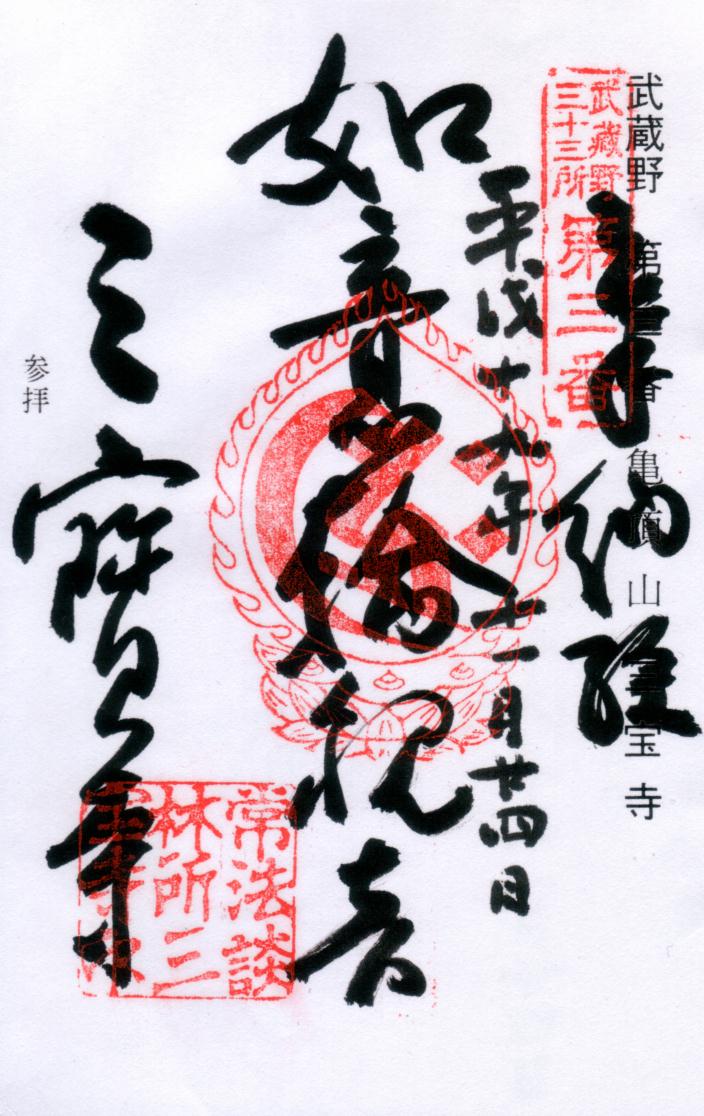 武蔵野 第三番 亀頂山 三宝寺
奉納経
武蔵野
三十三所
第三番
平成十九年十一月廿四日
如意輪観音
三寳寺
常法談
林所三
参拝